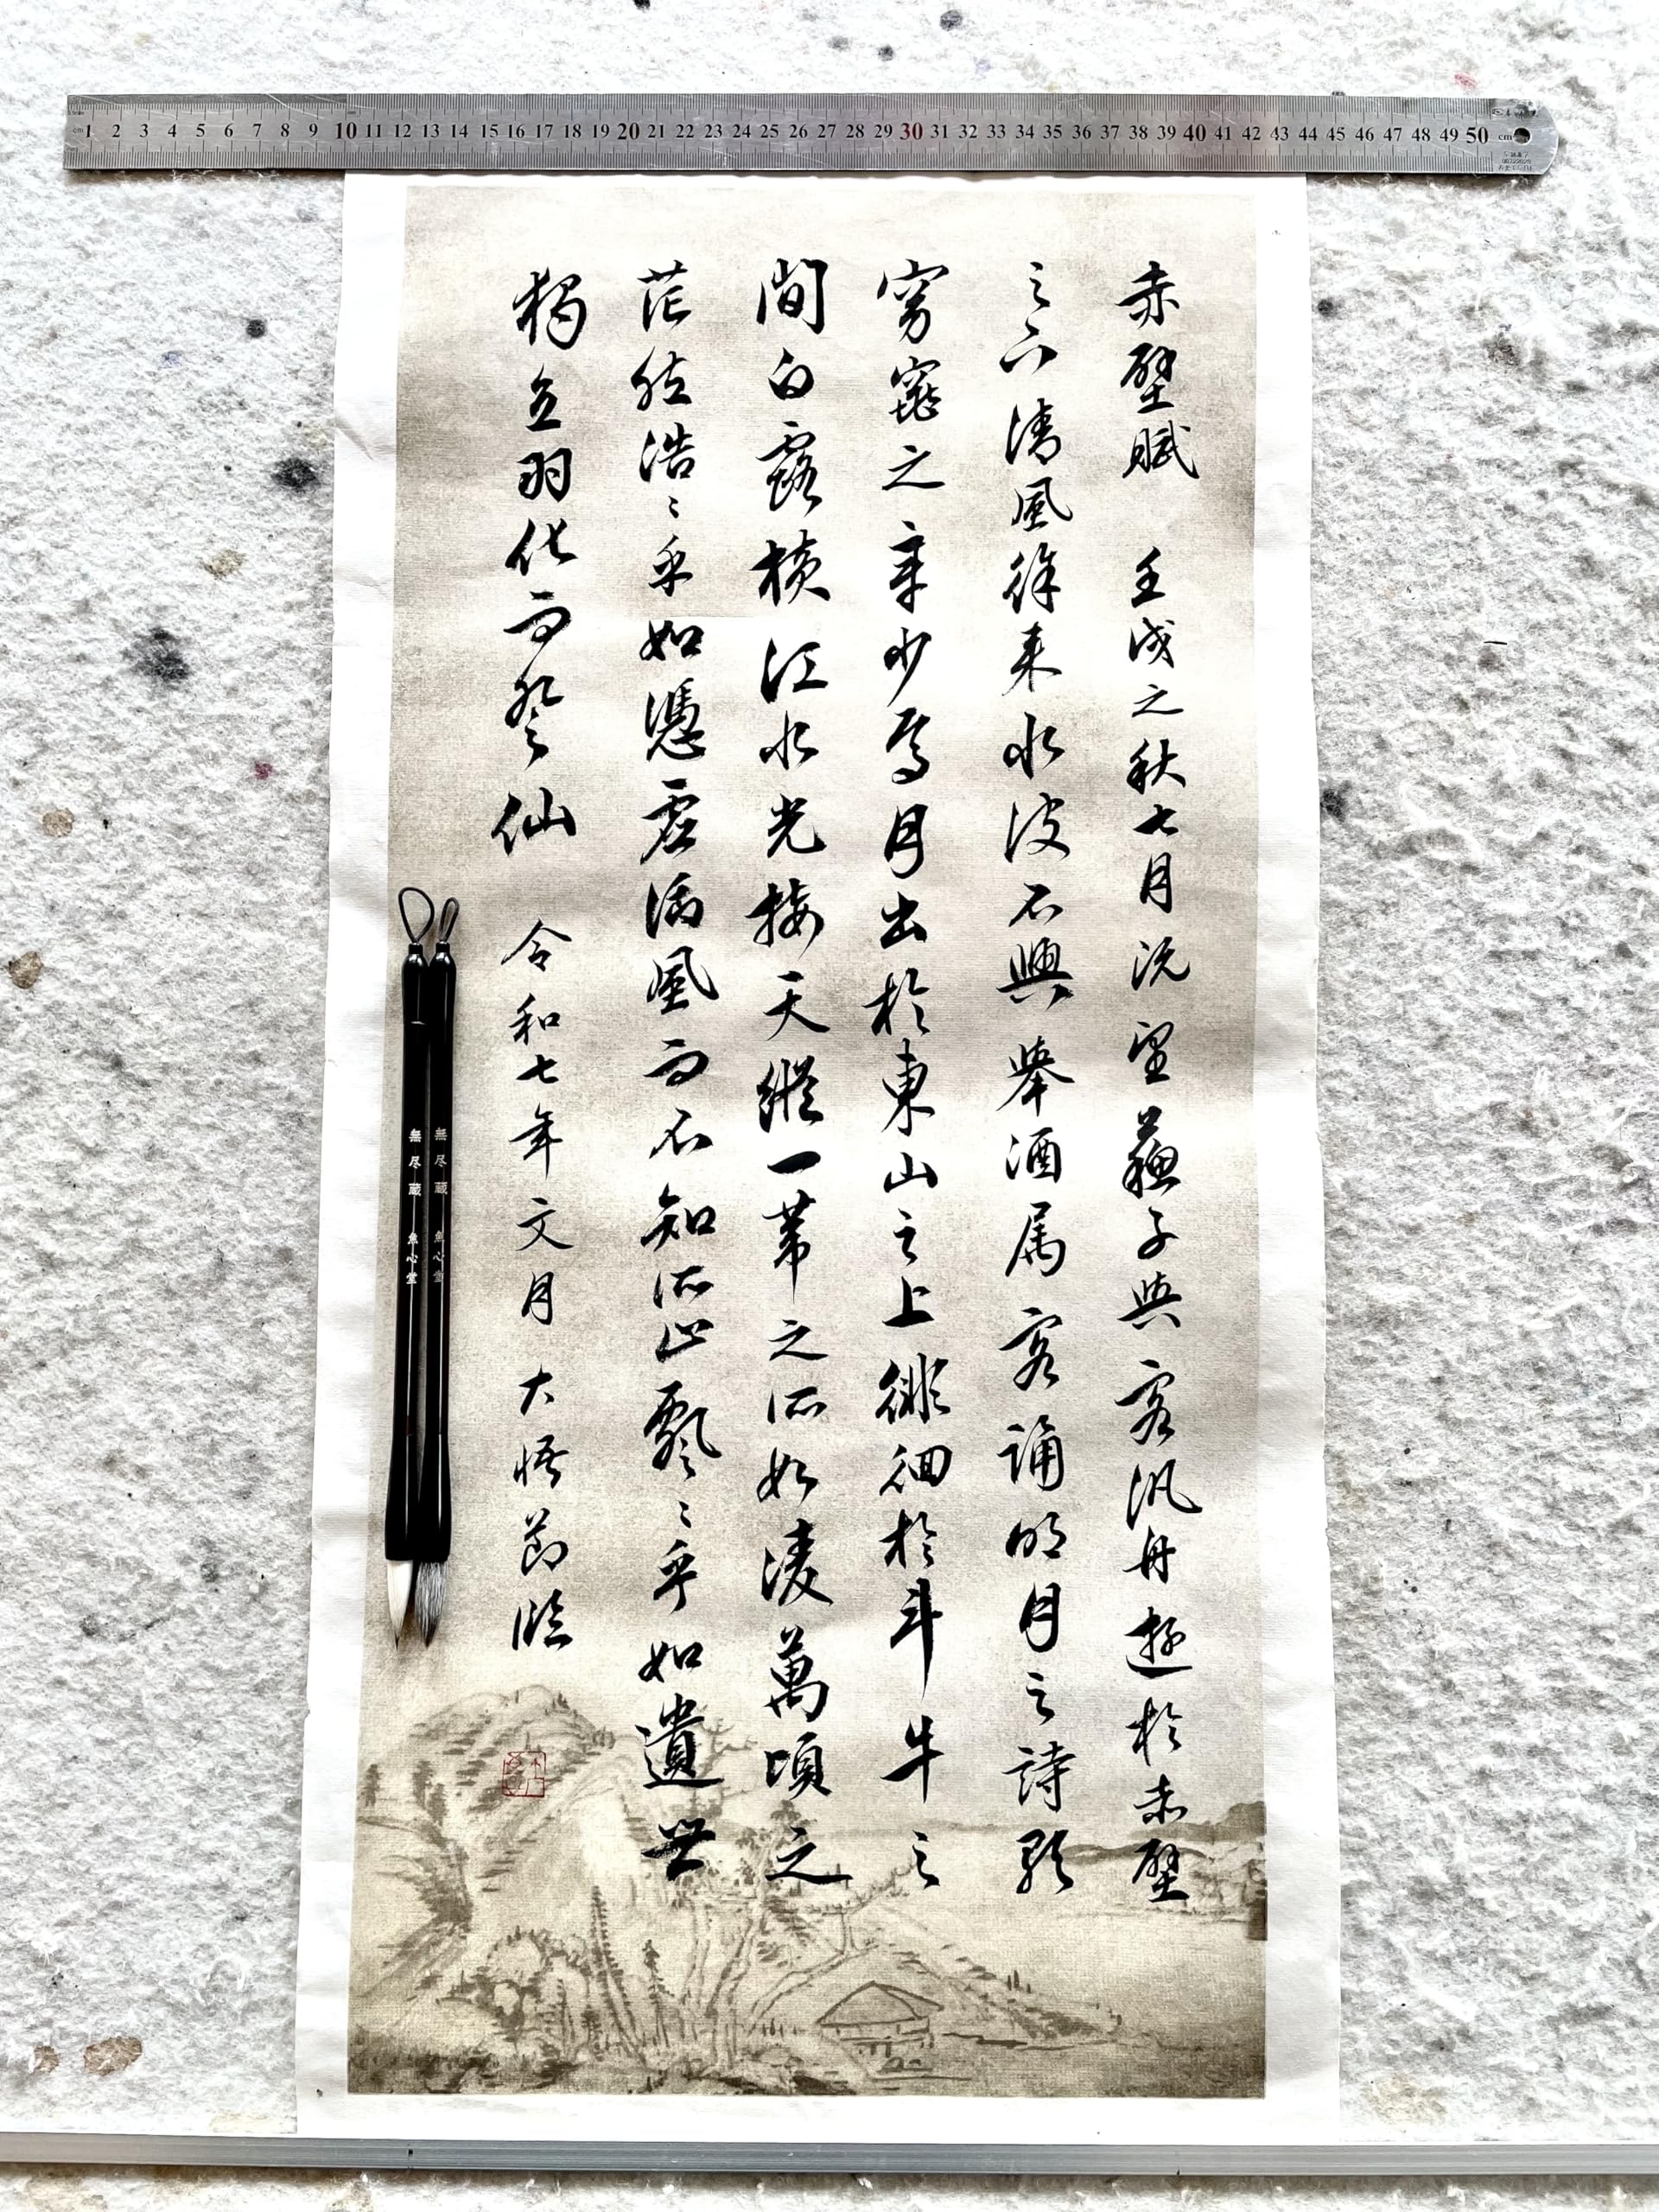 cm 1 2 3 4 5 6 7 8 9 10 11 12 13 14 15 16 17 18 19 20 21 22 23 24 25 26 27 28 29 30 31 32 33 34 35 36 37 38 39 40 41 42 43 44 45 46 47 48 49 50 cm
赤壁賦 壬戌之秋七月既望蘇子與客汎舟遊於赤壁
之下清風徐来水波不興舉酒属客誦明月之詩歌
窈窕之章少焉月出於東山之上徘徊於斗牛之
間白露横江水光接天縱一葦之所如凌萬頃之
茫然浩〻乎如憑虚御風而不知所止飄〻乎如遺世
獨立羽化而登仙 令和七年文月 大悟節臨
無尽蔵 魚心堂
無尽蔵 魚心堂